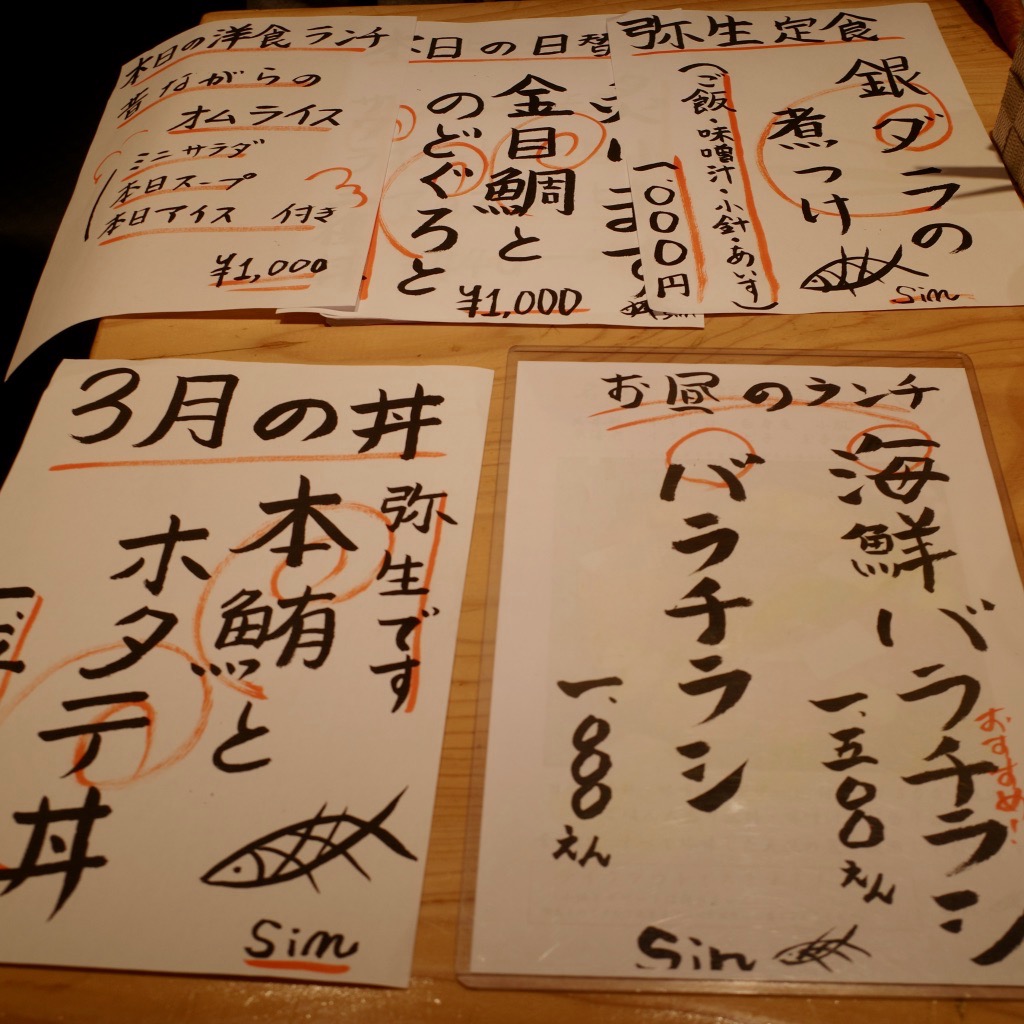 本日の洋食ランチ
昔ながらの
オムライス
ミニサラダ
本日スープ
本日アイス 付き
¥1,000
本日の日替
金目鯛と
のどぐろと
¥1,000
弥生定食
銀ダラの
煮つけ
(ご飯・味噌汁・小針・あいす)
1.000円
Sim
3月の丼
弥生です
本鮪と
ホタテ
丼
Sim
お昼のランチ
海鮮バラチラシ
おすすめ!
一.五〇〇えん
バラチラシ
一.〇〇〇えん
Sim